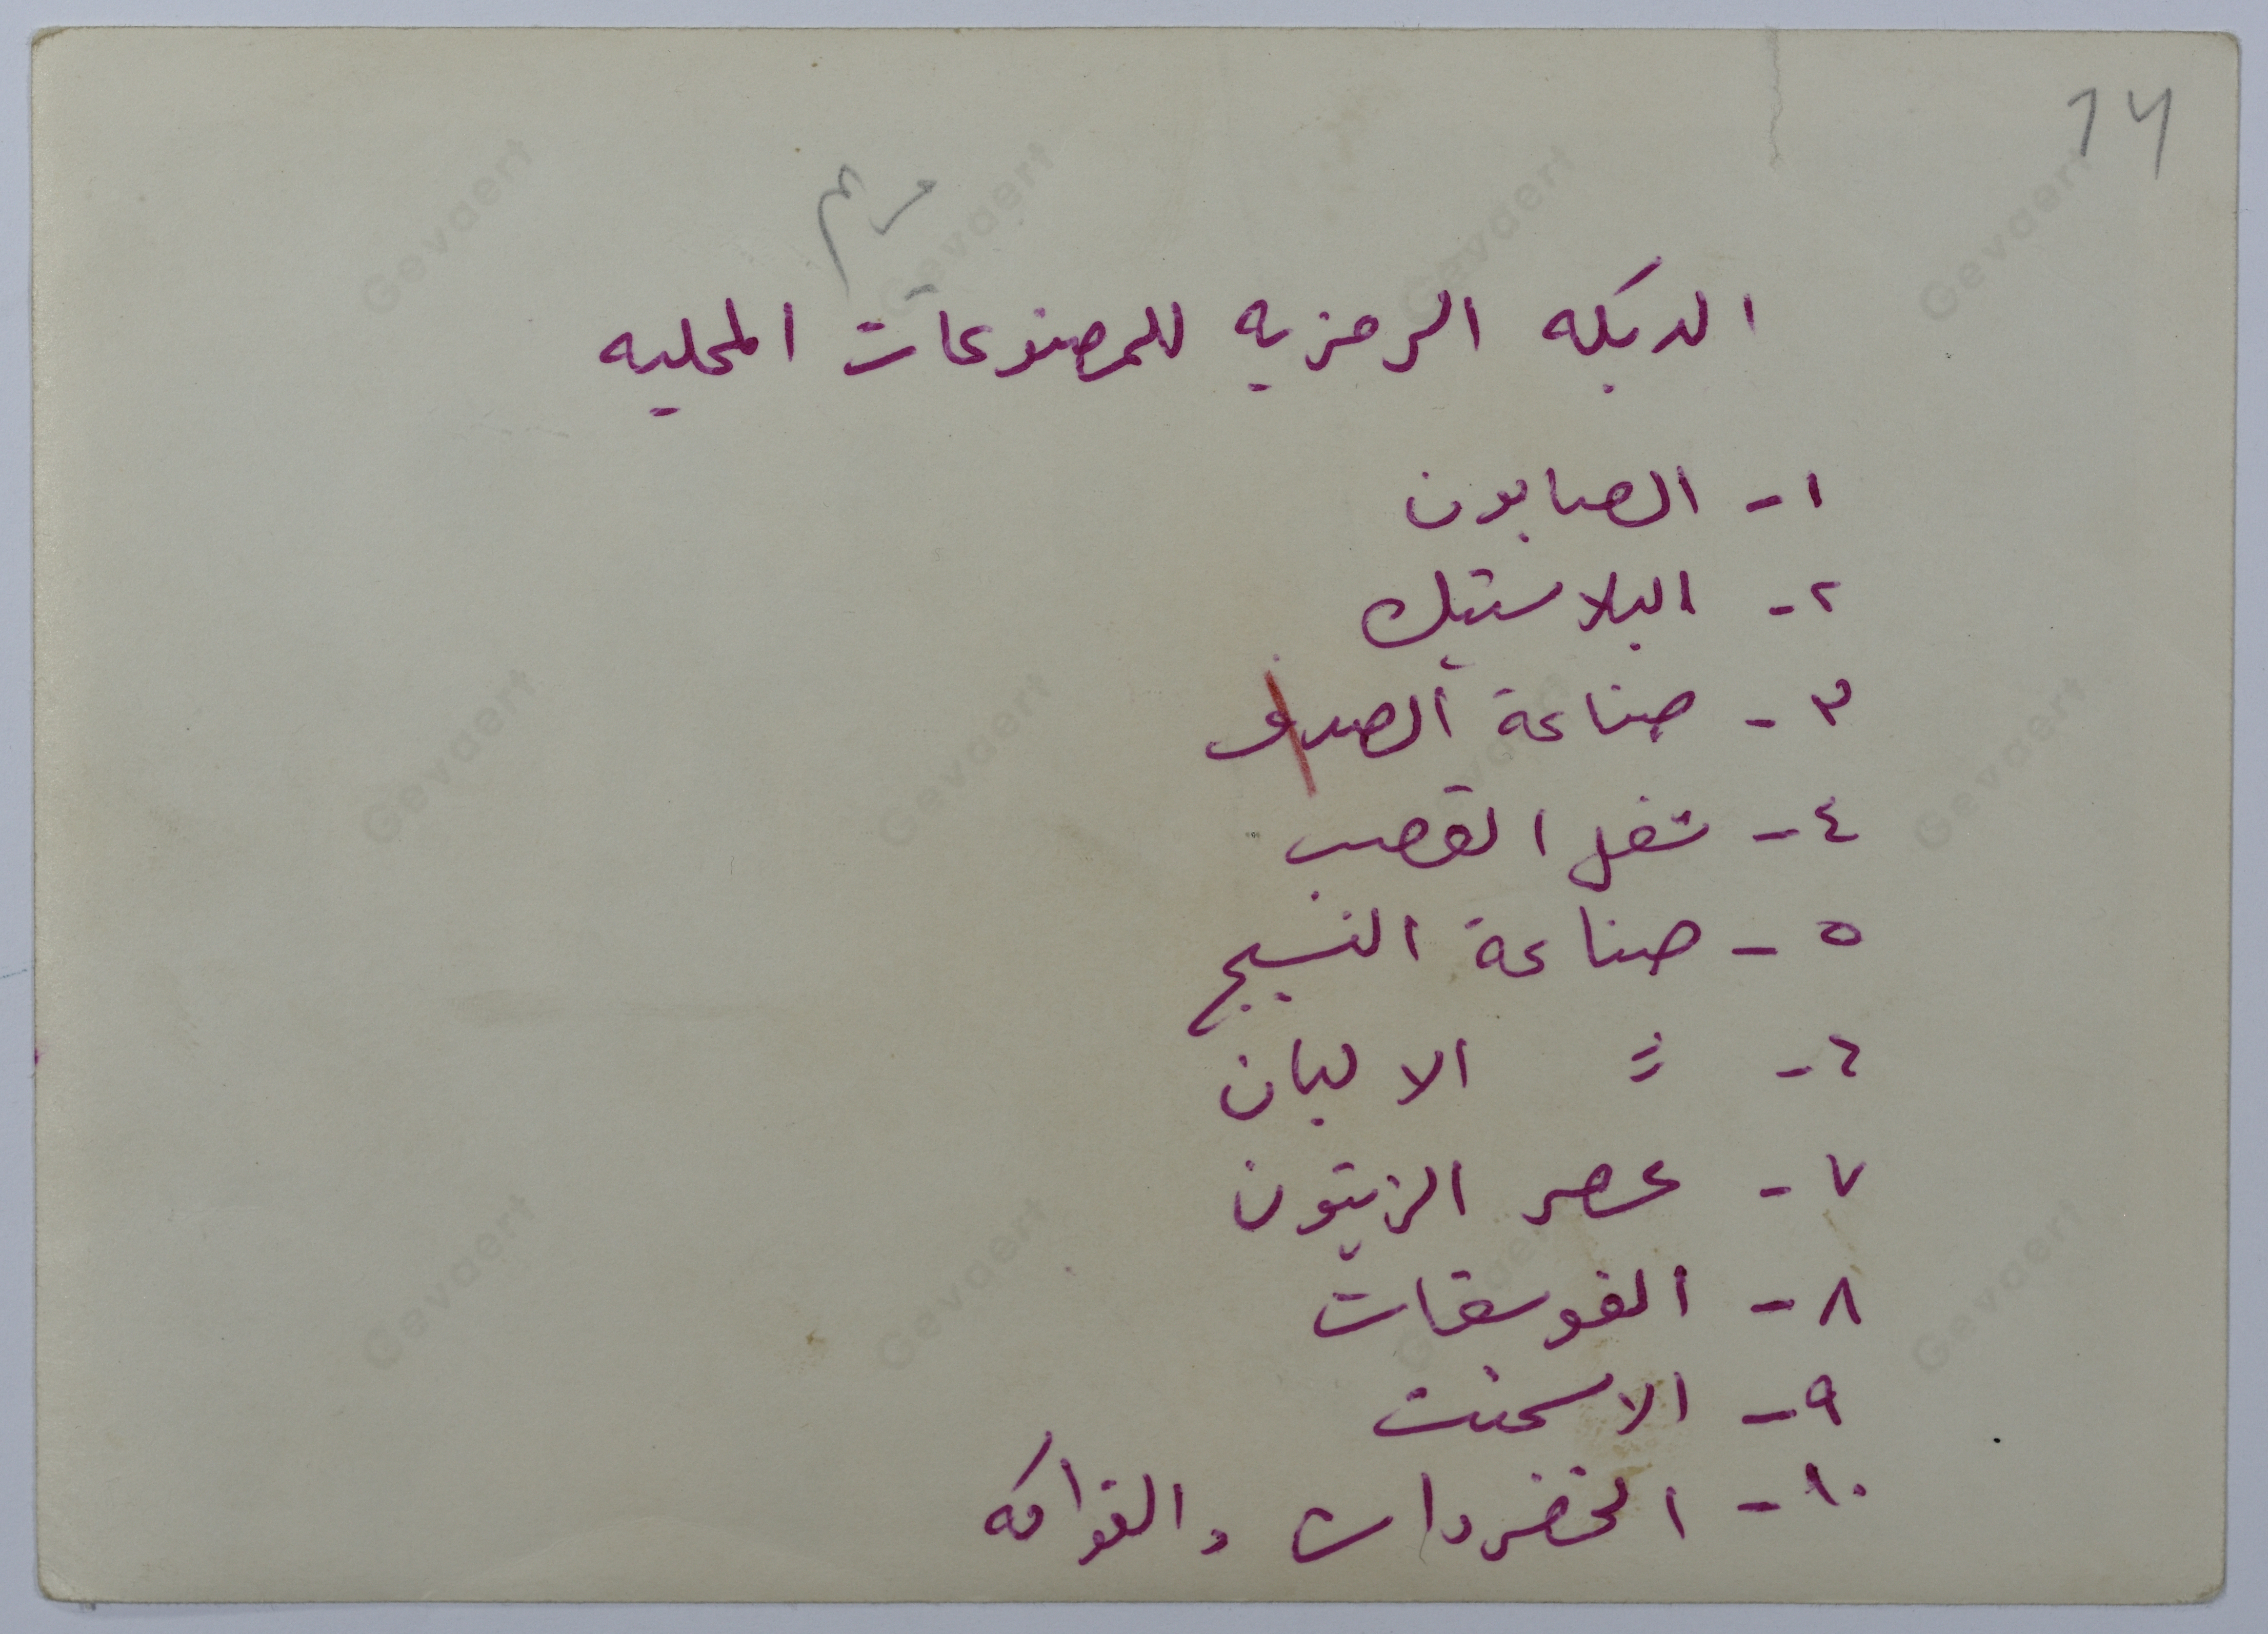 14
الدبكه الرمزيه للمصنوعات المحليه
١- الصابون
٢- البلاستيك
٣- صناعة الصدف
٤- شغل القصب
٥- صناعة النسيج
٦- = الالبان
٧- عصر الزيتون
٨- الفوسفات
٩- الاسمنت
١٠- الخضروات والفواكه